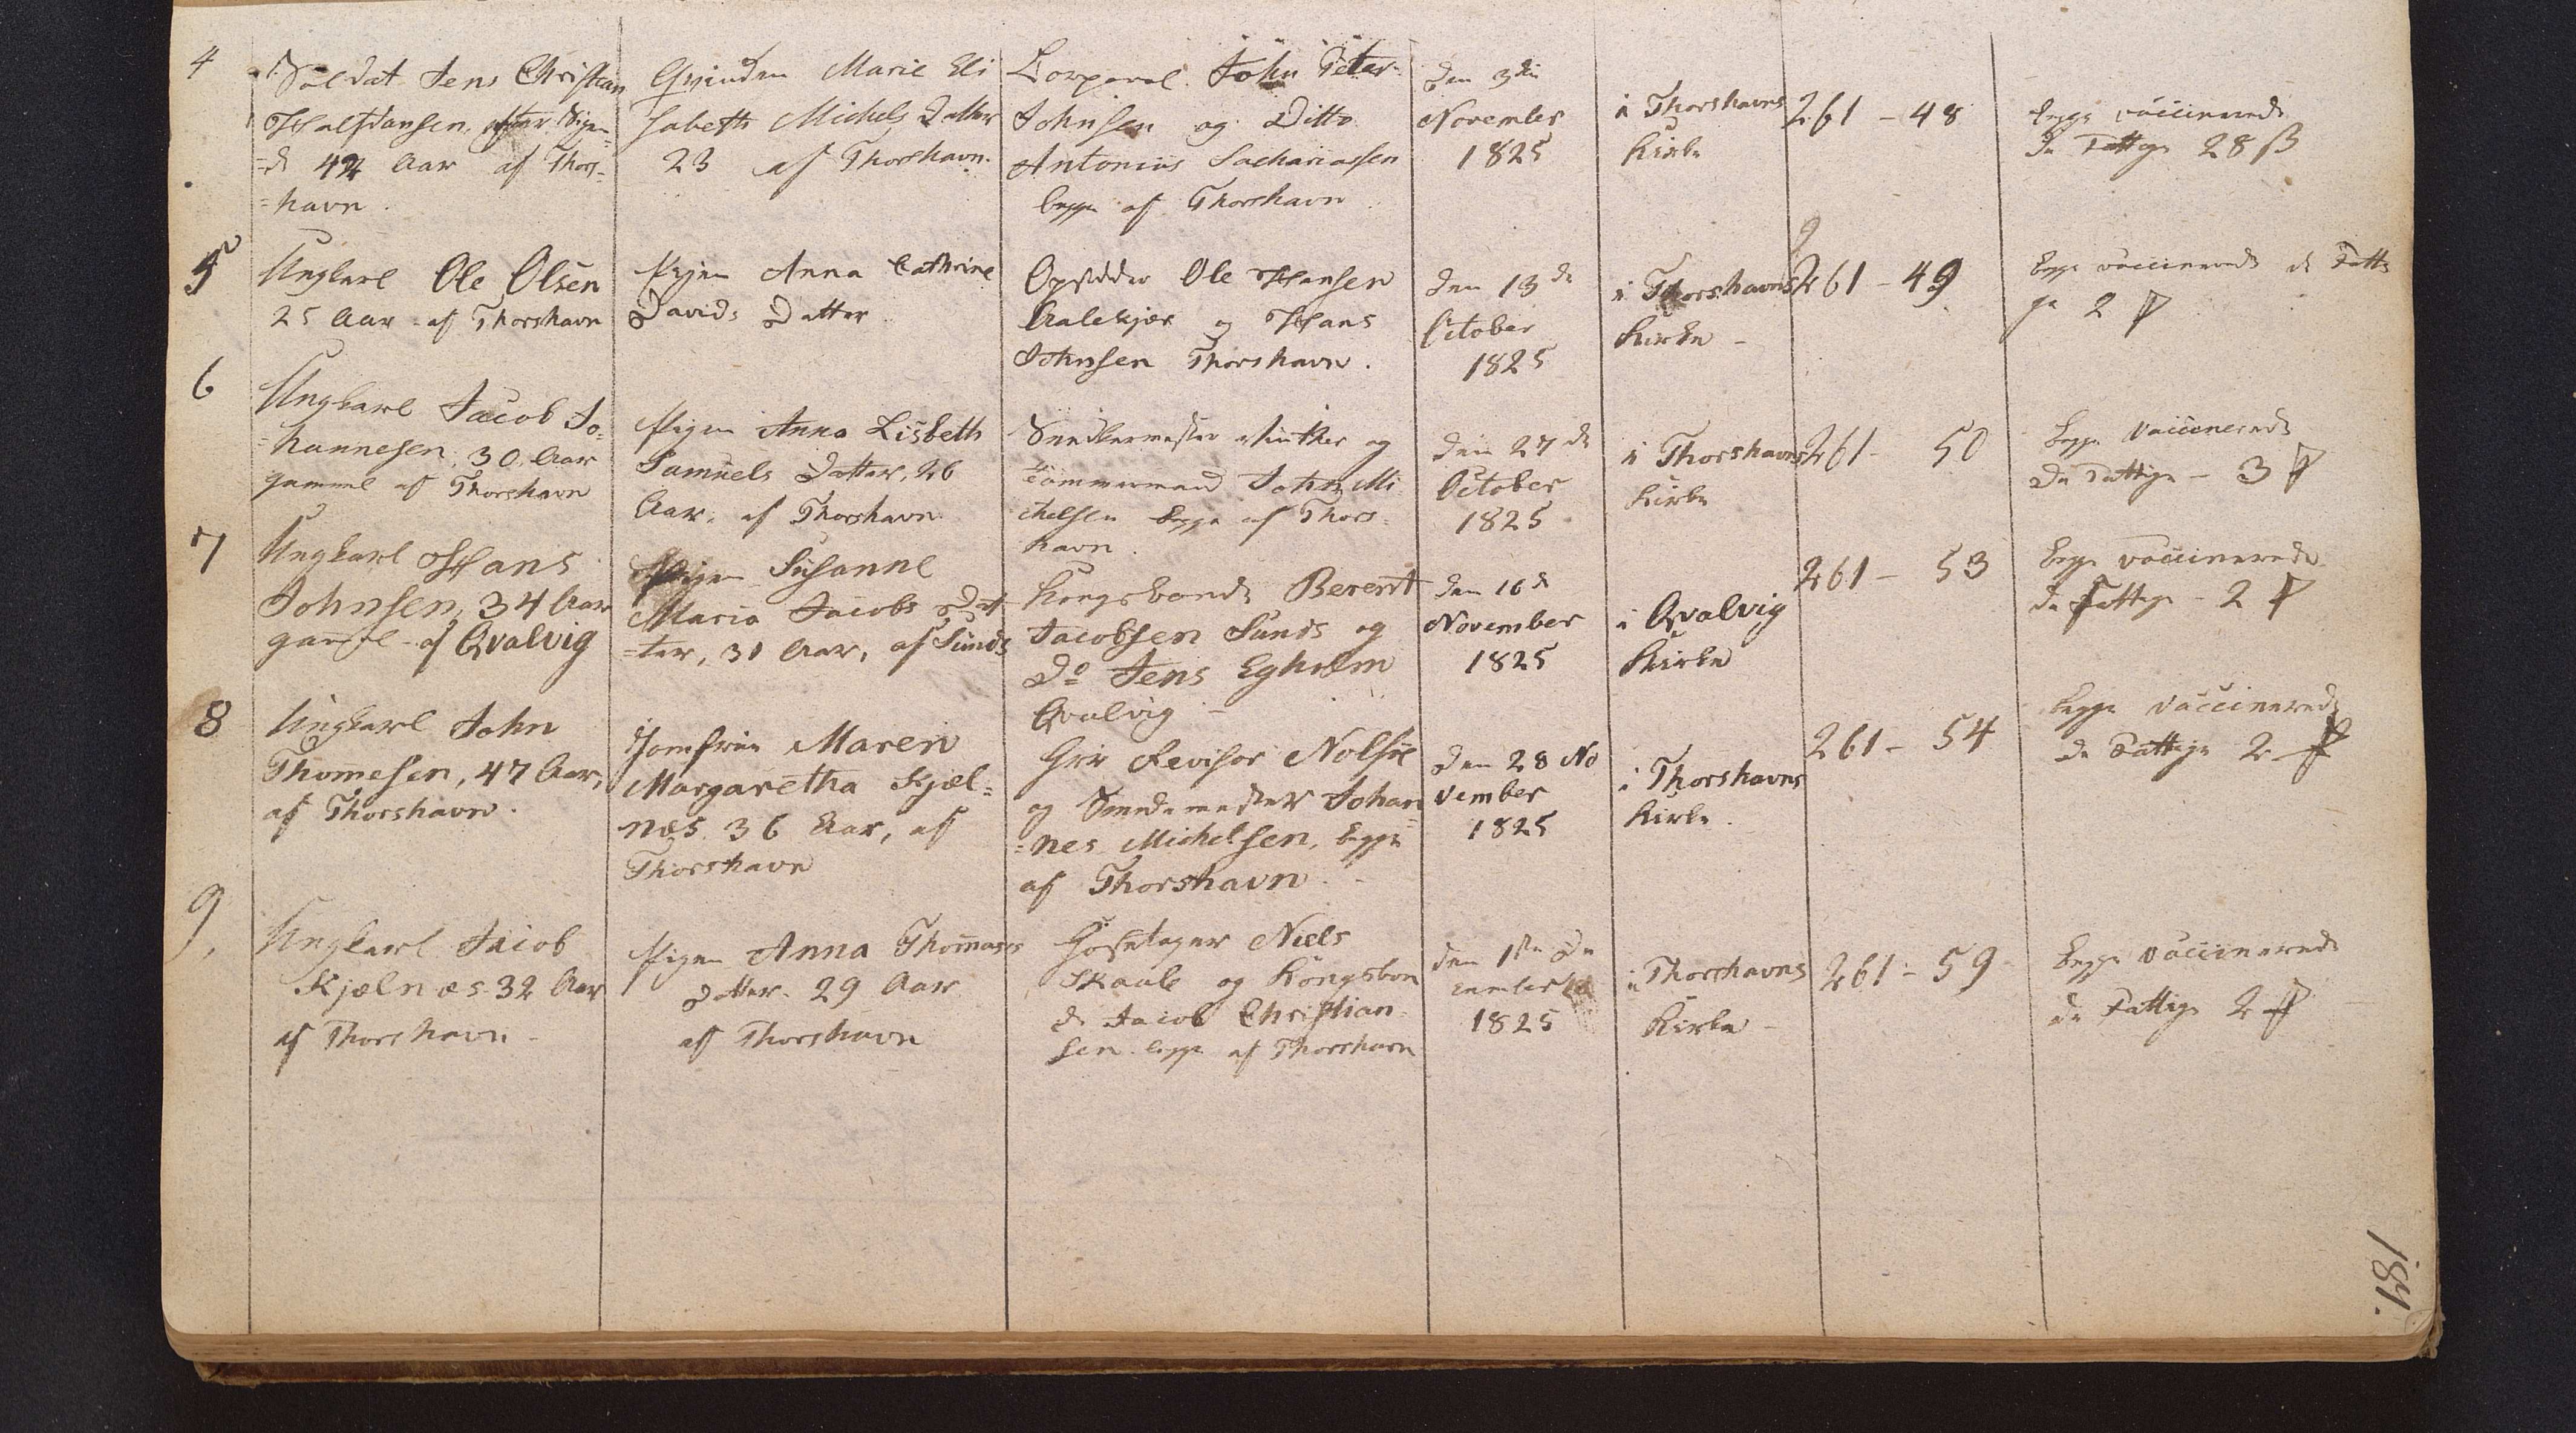 4
Soldat Jens Christian
Halfdansen, efter Sigen=
=de 44 Aar af Thors=
=havn.
Qvinden Marie Eli
sabeth Michels Datter
23 af Thorshavn.
Corporal John Peter
Johnsen og Ditto
Antonius Sachariassen
begge af Thorshavn
Den 3die
November
1825
i Thorshavns
Kirke
261 - 48
begge vaccinerede
De Fattige 28 ß
5
Ungkarl Ole Olsen
25 Aar af Thorshavn
Pigen Anna Cathrine
Davids Datter
Opsidder Ole Hansen
Kalekjær og Hans
Johnsen Thorshavn.
den 13de
October
1825
i Thorshavns
Kirke -
9
261 - 49
begge vaccinerede de Fatti
ge 2
6
Ungkarl Jacob Jo=
=hannesen, 30 Aar
gammel af Thorshavn
Pigen Anna Lisbeth
Samuels Datter, 26
Aar, af Thorshavn
Snedkermester Winther og
Tømmermand John Mi
chelsen begge af Thors=
havn.
den 27de
October
1825
i Thorshavns
Kirke
261 - 50
begge vaccinerede
De Fattige - 3
7
Ungkarl Hans
Johnsen, 34 Aar
gammel af Qvalvig
Pigen Susanne
Maria Jacobs Dat
=ter, 31 Aar, af Sunds
Kongsbonde Berent
Jacobsen Sunds og
Do Jens Egholm
Qvalvig -
den 16de
November
1825
i Qvalvig
Kirke
261 - 53
begge vaccinerede
de Fattige - 2
8
Ungkarl John
Thomesen, 47 Aar,
af Thorshavn.
Jomfrue Maren
Margaretha Kjæl=
næs 36 Aar, af
Thorshavn
Hrr Revisor Nolsøe
og Smedemester Johan
=nes Michelsen, begge
af Thorshavn.
Den 28 No
vember
1825
i Thorshavns
Kirke.
261 - 54
begge vaccinerede
de Fattige 2
9,
Ungkarl Jacob
Kjelnæs 32 Aar
af Thorshavn -
Pigen Anna Thomases
Datter 29 Aar
af Thorshavn
Niels
Skaale og Kongsbon
de Jacob Christian=
sen begge af Thorshavn
Den 1ste De
cember
1825
i Thorshavns
Kirke -
261 - 59
begge vaccinerede
de Fattige 2
184.